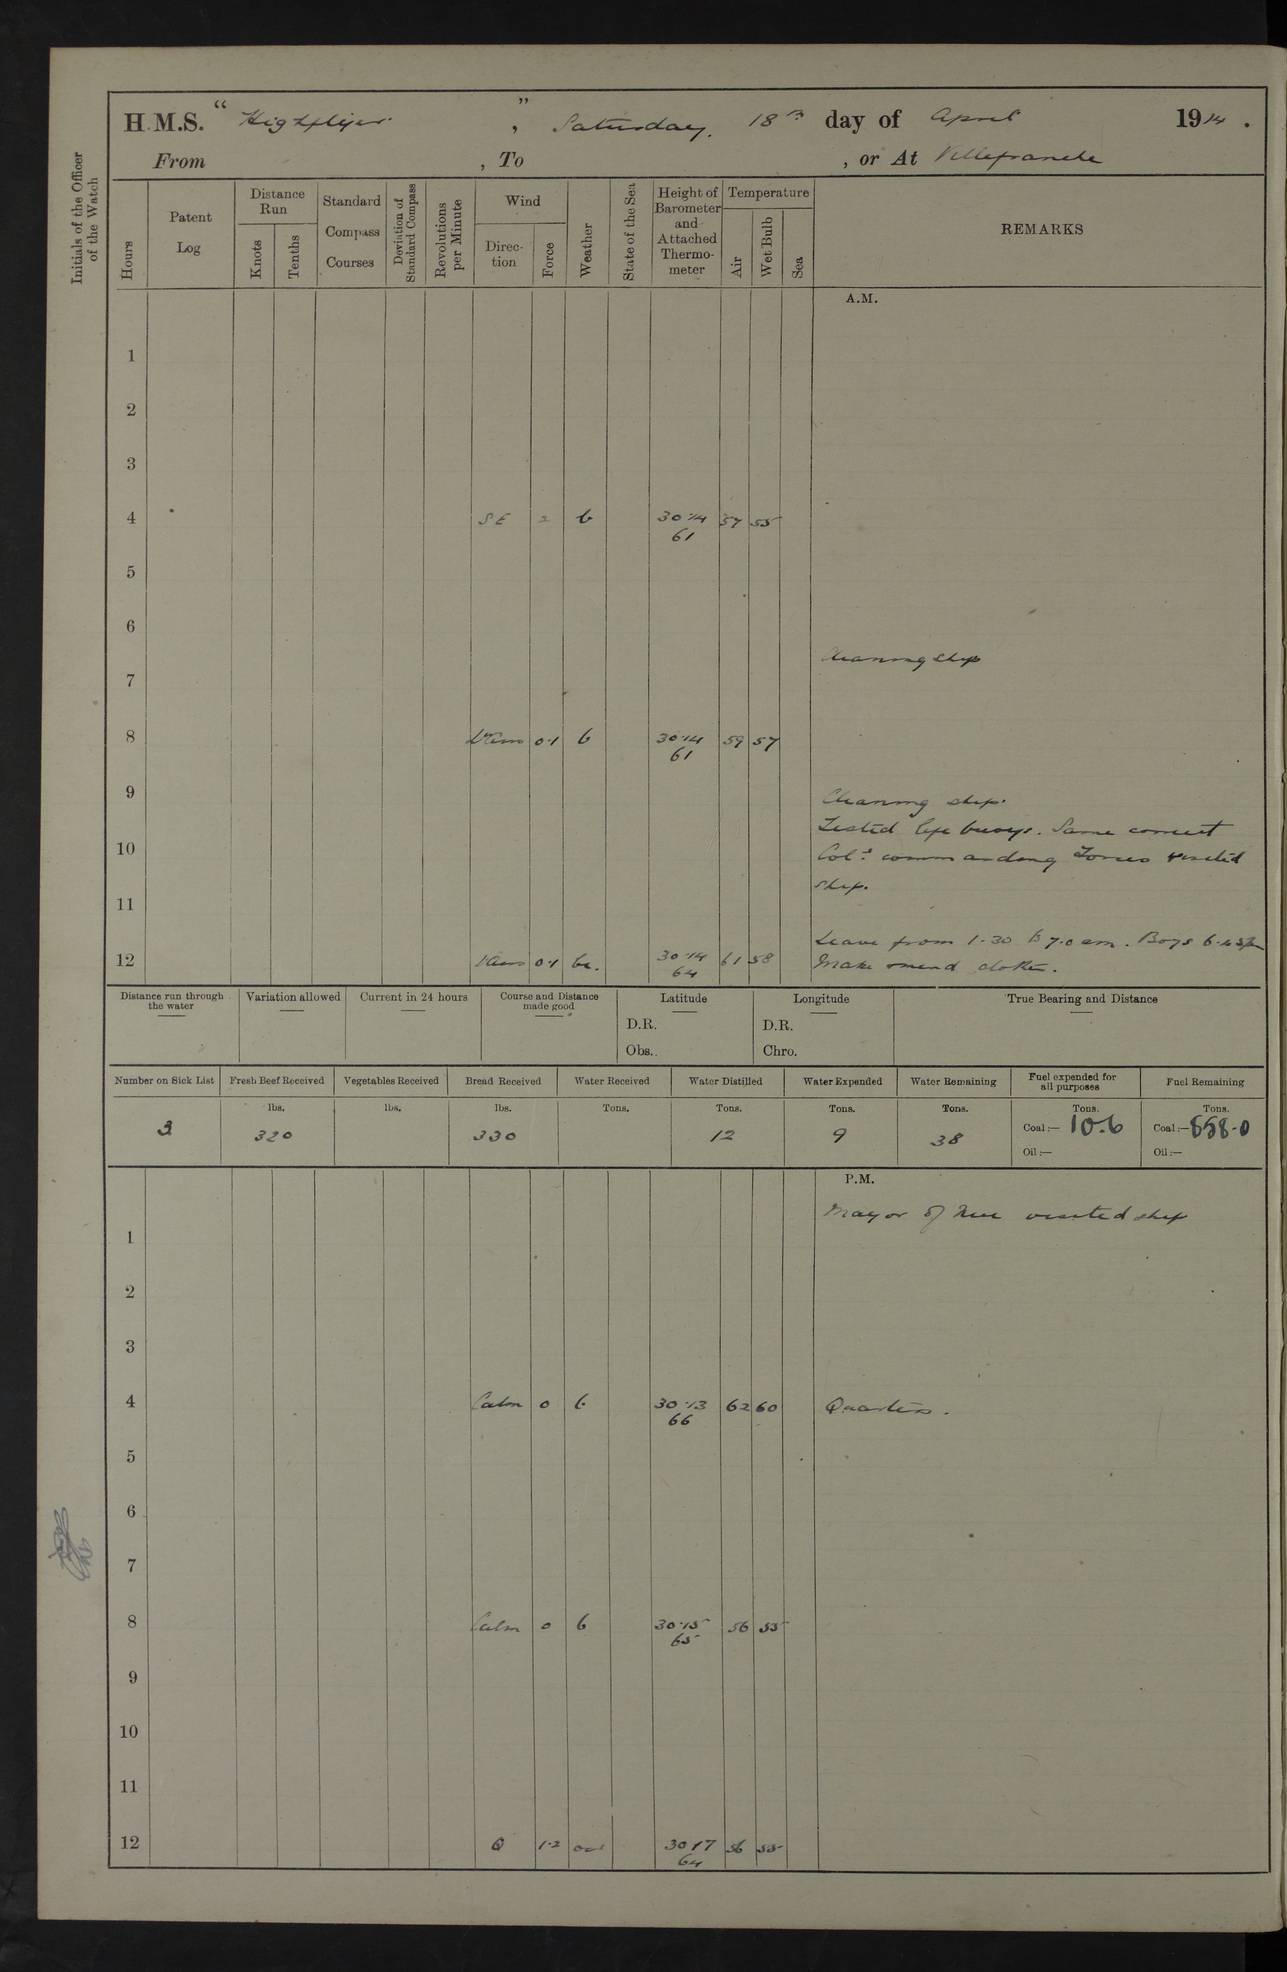 H.M.S. “Highflyer”, Saturday, 18th day of April 1914.
From , To , or At Villefranche
Initials of the Officer of the Watch
Hours
Patent Log
Distance Run
Knots
Tenths
Standard Compass Courses
Deviation of Standard Compass
Revolutions per Minute
Wind
Direction
Force
Weather
State of the Sea
Height of Barometer and Attached Thermometer
Temperature
Air
Wet Bulb
Sea
REMARKS
A.M.
1
2
3
4 SE 2 b 30.14 57 55
61
5
6
Cleaning ship
7
8 0.1 b 30.14 59 57
61
9
Cleaning ship.
Tested life buoys. Same correct
10
Col. commanding Forces visited
ship.
11
Leave from 1.30 to 7.0 am. Boys 6.45pm
12 0.1 bc. 30.14 61 58 Make & mend clothes.
64
Distance run through the water
Variation allowed
Current in 24 hours
Course and Distance made good
Latitude
D.R.
Obs.
Longitude
D.R.
Chro.
True Bearing and Distance
Number on Sick List
Fresh Beef Received
Vegetables Received
Bread Received
Water Received
Water Distilled
Water Expended
Water Remaining
Fuel expended for all purposes
Fuel Remaining
lbs. lbs. lbs. Tons. Tons. Tons. Tons. Tons. Tons.
3 320 330 12 9 38 Coal:— 10.6 Coal:— 558.0
Oil:— Oil:—
P.M.
Mayor of Nice visited ship
1
2
3
4 Calm 0 b 30.13 62 60 Quarters.
66
5
6
7
8 Calm 0 b 30.15 56 55
65
9
10
11
12 1.2 30.17 56 55
64